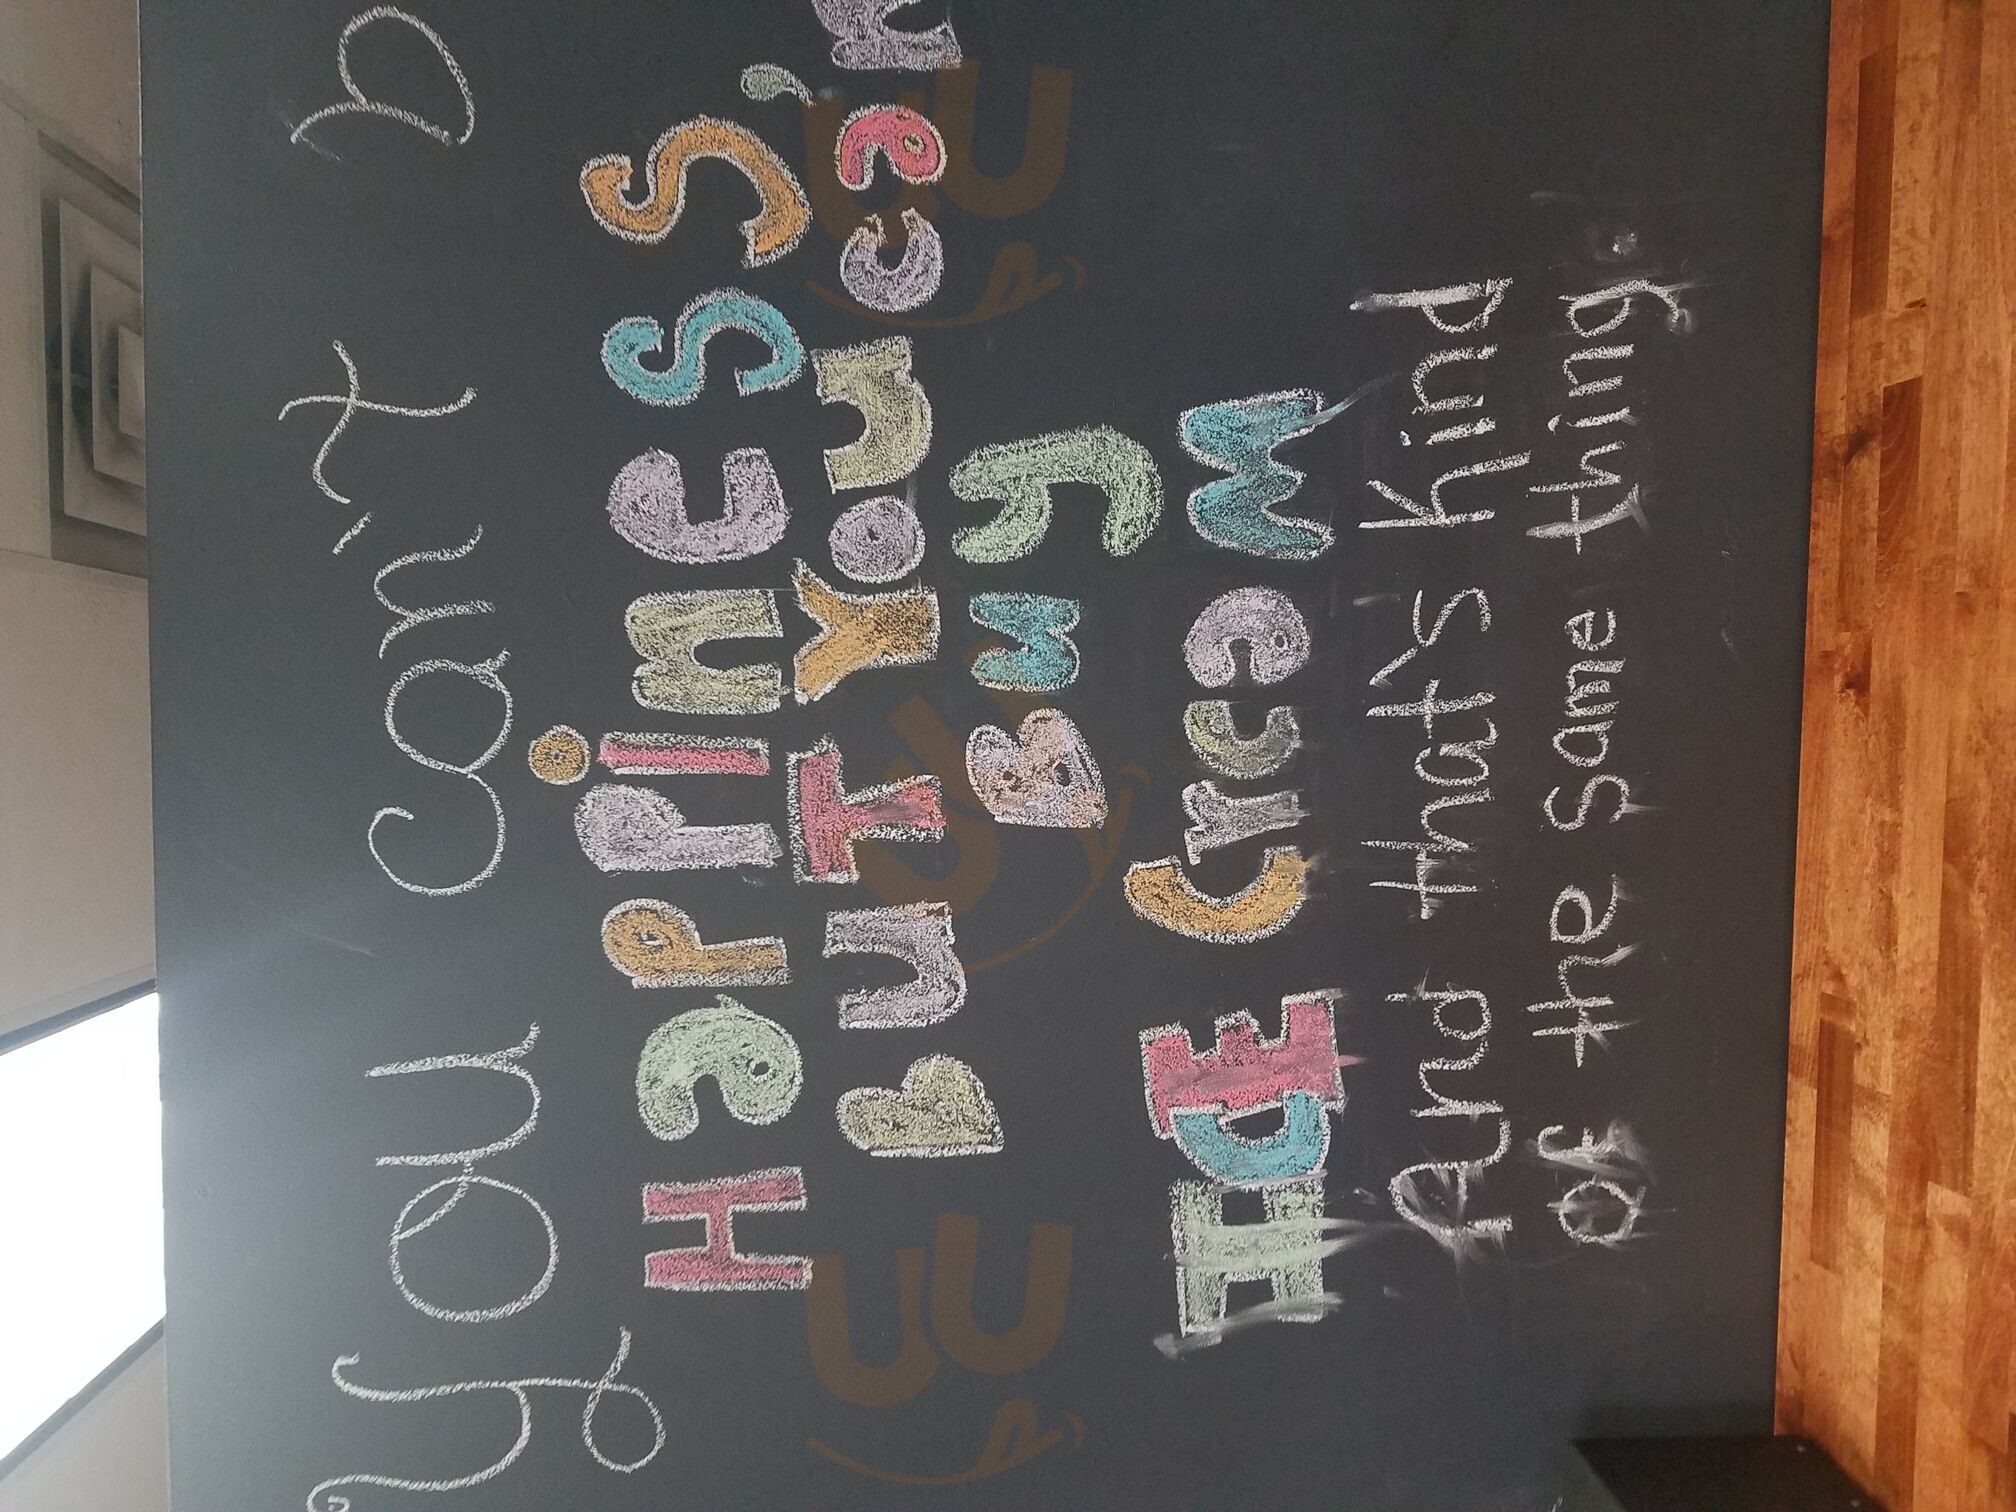 You can't B
Happiness,
But You can
Buy
ICE Cream
And that's kind
of the same thing.